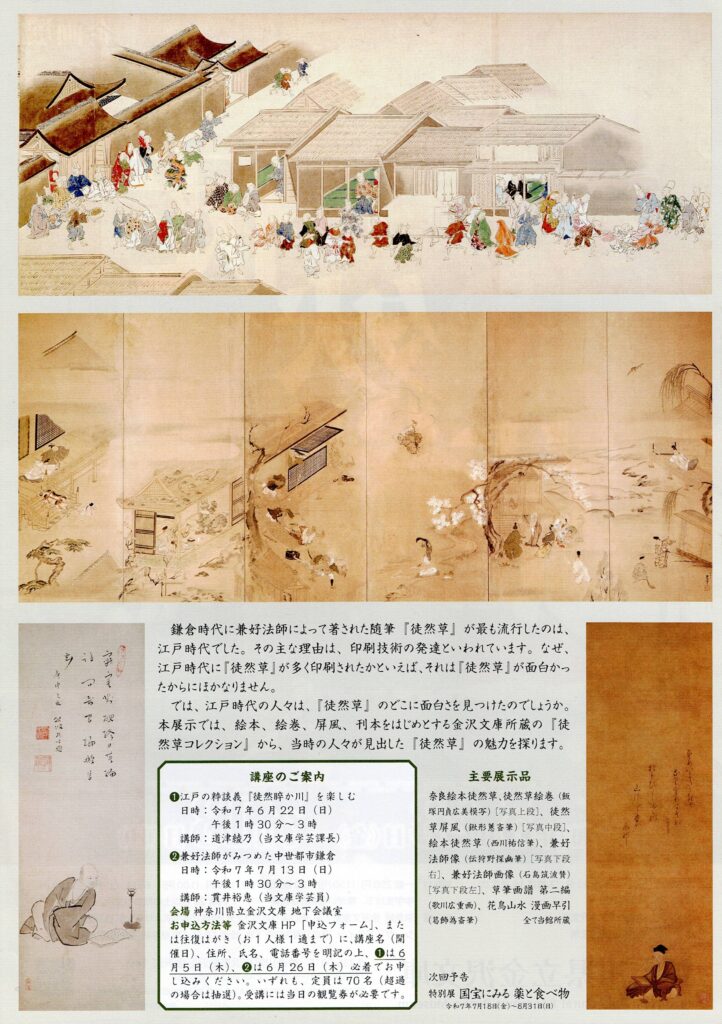 鎌倉時代に兼好法師によって著された随筆『徒然草』が最も流行したのは、
江戸時代でした。その主な理由は、印刷技術の発達といわれています。なぜ、
江戸時代に『徒然草』が多く印刷されたかといえば、それは『徒然草』が面白かっ
たからにほかなりません。
では、江戸時代の人々は、『徒然草』のどこに面白さを見つけたのでしょうか。
本展示では、絵本、絵巻、屏風、刊本をはじめとする金沢文庫所蔵の『徒
然草コレクション』から、当時の人々が見出した『徒然草』の魅力を探ります。
講座のご案内
❶江戸の粋談義『徒然睟か川』を楽しむ
日時:令和7年6月22日(日)
午後1時30分~3時
講師:道津綾乃(当文庫学芸課長)
❷兼好法師がみつめた中世都市鎌倉
日時:令和7年7月13日(日)
午後1時30分~3時
講師:貫井裕恵(当文庫学芸員)
会場 神奈川県立金沢文庫 地下会議室
お申込方法等 金沢文庫HP「申込フォーム」、また
は往復はがき(お1人様1通まで)に、講座名(開
催日)、住所、氏名、電話番号を明記の上、❶は6
月5日(木)、❷は6月26日(木)必着でお申
し込みください。いずれも、定員は70名(超過
の場合は抽選)。受講には当日の観覧券が必要です。
主要展示品
奈良絵本徒然草、徒然草絵巻(飯
塚円貞広美模写)[写真上段]、徒然
草屏風(鍬形蕙斎筆)[写真中段]、
絵本徒然草(西川祐信筆)、兼好
法師像(伝狩野探幽筆)[写真下段
右]、兼好法師画像(石島筑波賛)
[写真下段左]、草筆画譜 第二編
(歌川広重画)、花鳥山水 漫画早引
(葛飾為斎筆) 全て当館所蔵
次回予告
特別展 国宝にみる 薬と食べ物
令和7年7月18日(金)~8月31日(日)